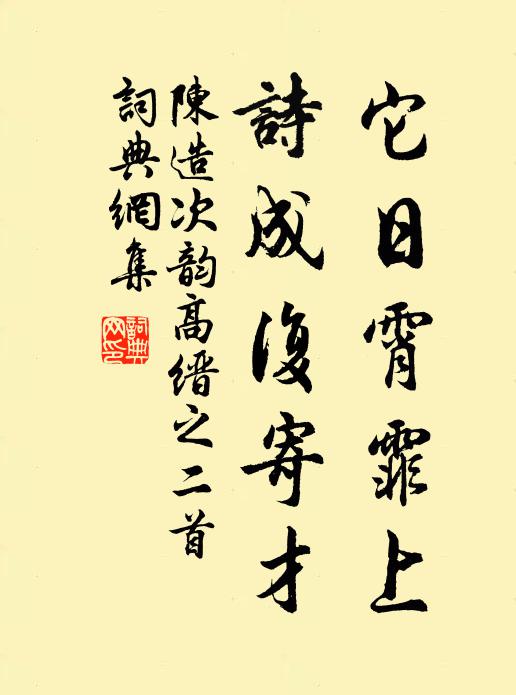 它日霄霏上
詩成復寄才
陳造次韵高缙之二首
詞典網集
詞典
网印